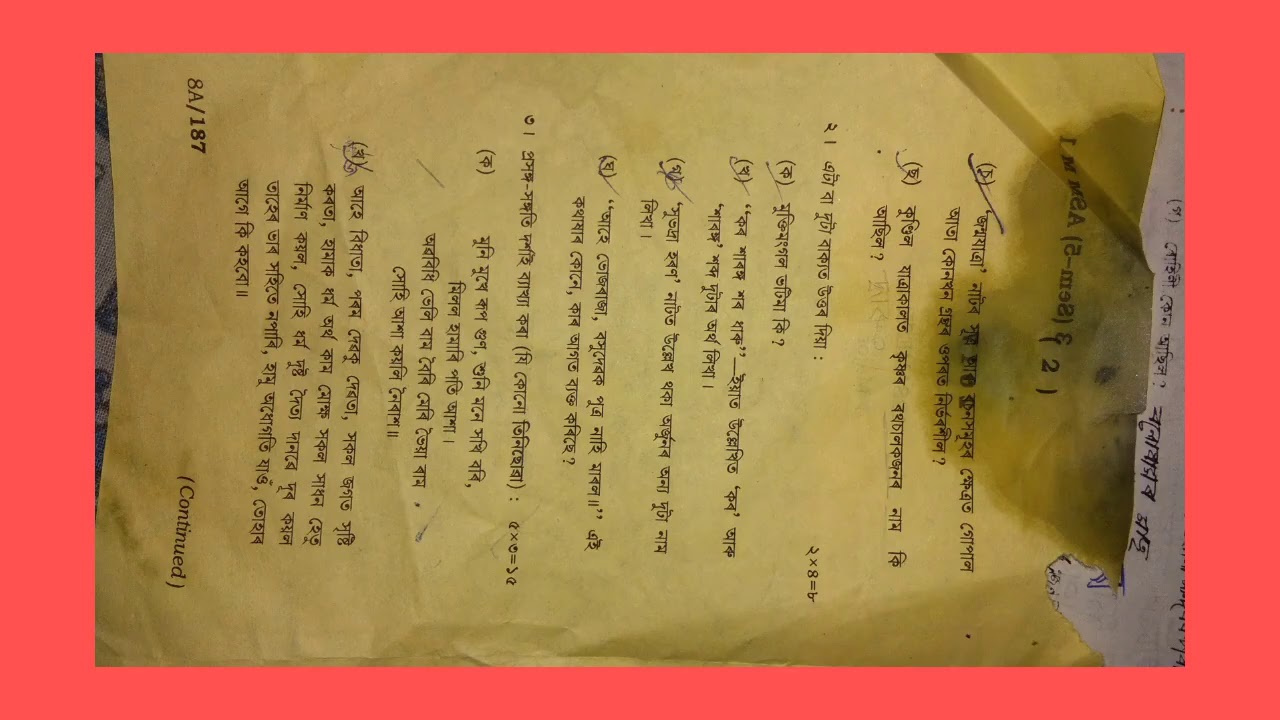 ( 2 )
(চ) ‘জন্মযাত্ৰা’ নাটৰ সূত্ৰ আৰু শ্লোকসমূহৰ ক্ষেত্ৰত গোপাল
আতা কোনখন গ্ৰন্থৰ ওপৰত নিৰ্ভৰশীল ?
(ছ) কুণ্ডিল যাত্ৰাকালত কৃষ্ণৰ ৰথচালকজনৰ নাম কি
আছিল ?
২। এটা বা দুটা বাক্যত উত্তৰ দিয়া : ২×৪=৮
(ক) মুক্তিমংগল ভটিমা কি ?
(খ) “কৰ শাৰঙ্গ শৰ ধাক”—ইয়াত উল্লেখিত ‘কৰ’ আৰু
‘শাৰঙ্গ’ শব্দ দুটাৰ অৰ্থ লিখা ।
(গ) ‘সুভদ্ৰা হৰণ’ নাটত উল্লেখ থকা অৰ্জুনৰ অন্য দুটা নাম
লিখা ।
(ঘ) “আহে ভোজৰাজা, বসুদেৱক পুত্ৰ নাহি মাৰল॥” এই
কথাষাৰ কোনে, কাৰ আগত ব্যক্ত কৰিছে ?
৩। প্ৰসঙ্গ-সঙ্গতি দৰ্শাই ব্যাখ্যা কৰা (যি কোনো তিনিটাৰ) : ৫×৩=১৫
(ক) মুনি মুখে ৰূপ গুণ, শুনি মনে সখি বৰি,
মিলল হামাৰি পতি আশা ।
অৱবিধি ভেলি বাম বৈৰি মেৰি ভৈয়া ৰাম
সোহি আশা কয়লি নৈৰাশ॥
(খ) আহে বিধাতা, পৰম দেৱকু দেৱতা, সকল জগত সৃষ্টি
কৰতা, হামাক ধৰ্ম অৰ্থ কাম মোক্ষ সকল সাধন হেতু
নিৰ্মাণ কয়ল, সোহি ধৰ্ম দুষ্ট দৈত্য দানৱে দূৰ কয়ল
তাহেৰ ভাৰ সহিতে নপাৰি, হামু অধোগতি যাওঁ, তোহাৰ
আগে কি কহবো॥
8A/187
(Continued)